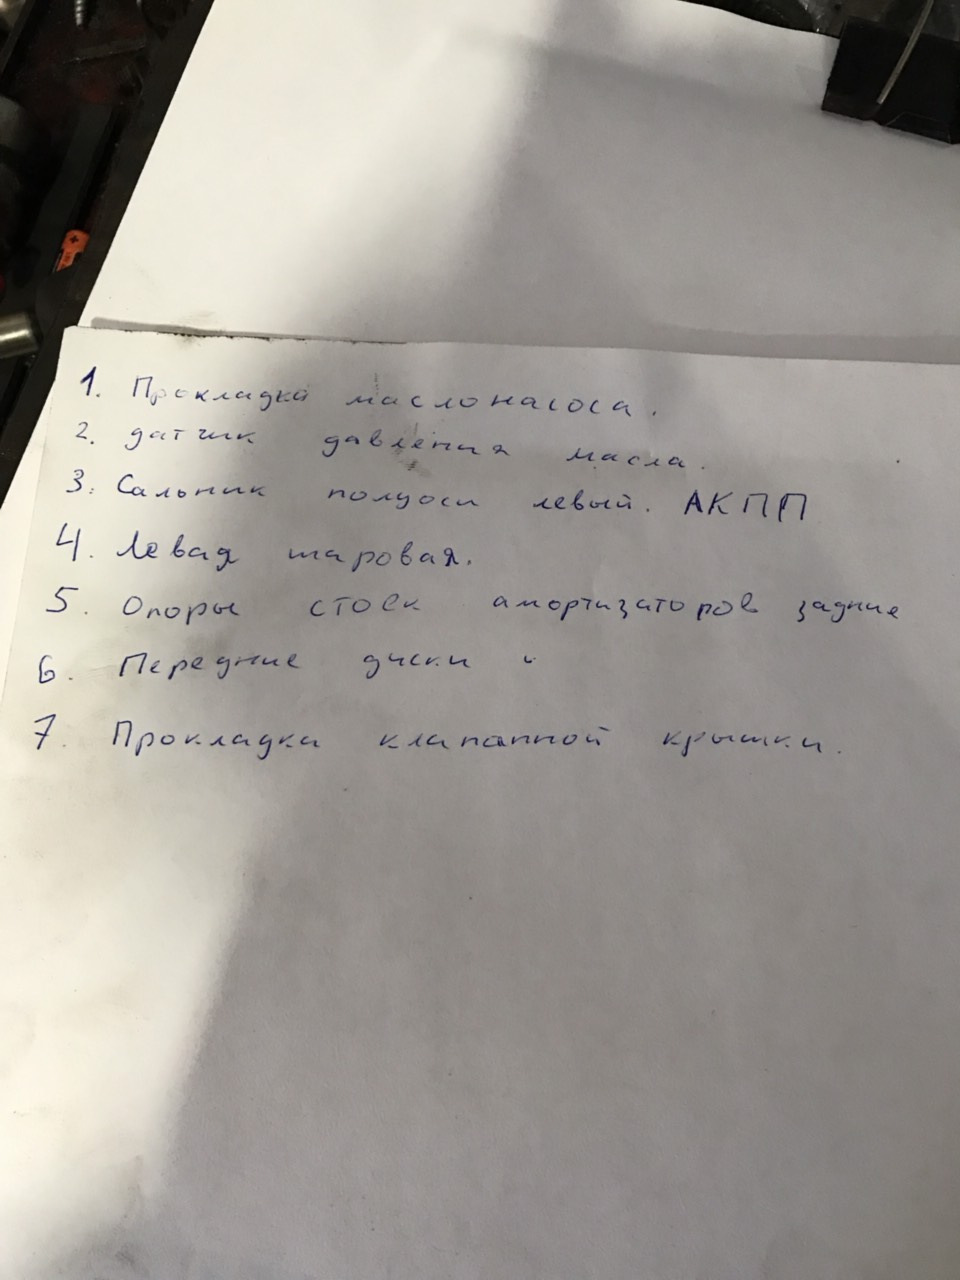 1. Прокладка маслонасоса.
2. датчик давления масла.
3. Сальник полуоси левый. АКПП
4. Левая шаровая.
5. Опоры стоек амортизаторов задние
6. Передние диски и
7. Прокладка клапанной крышки.